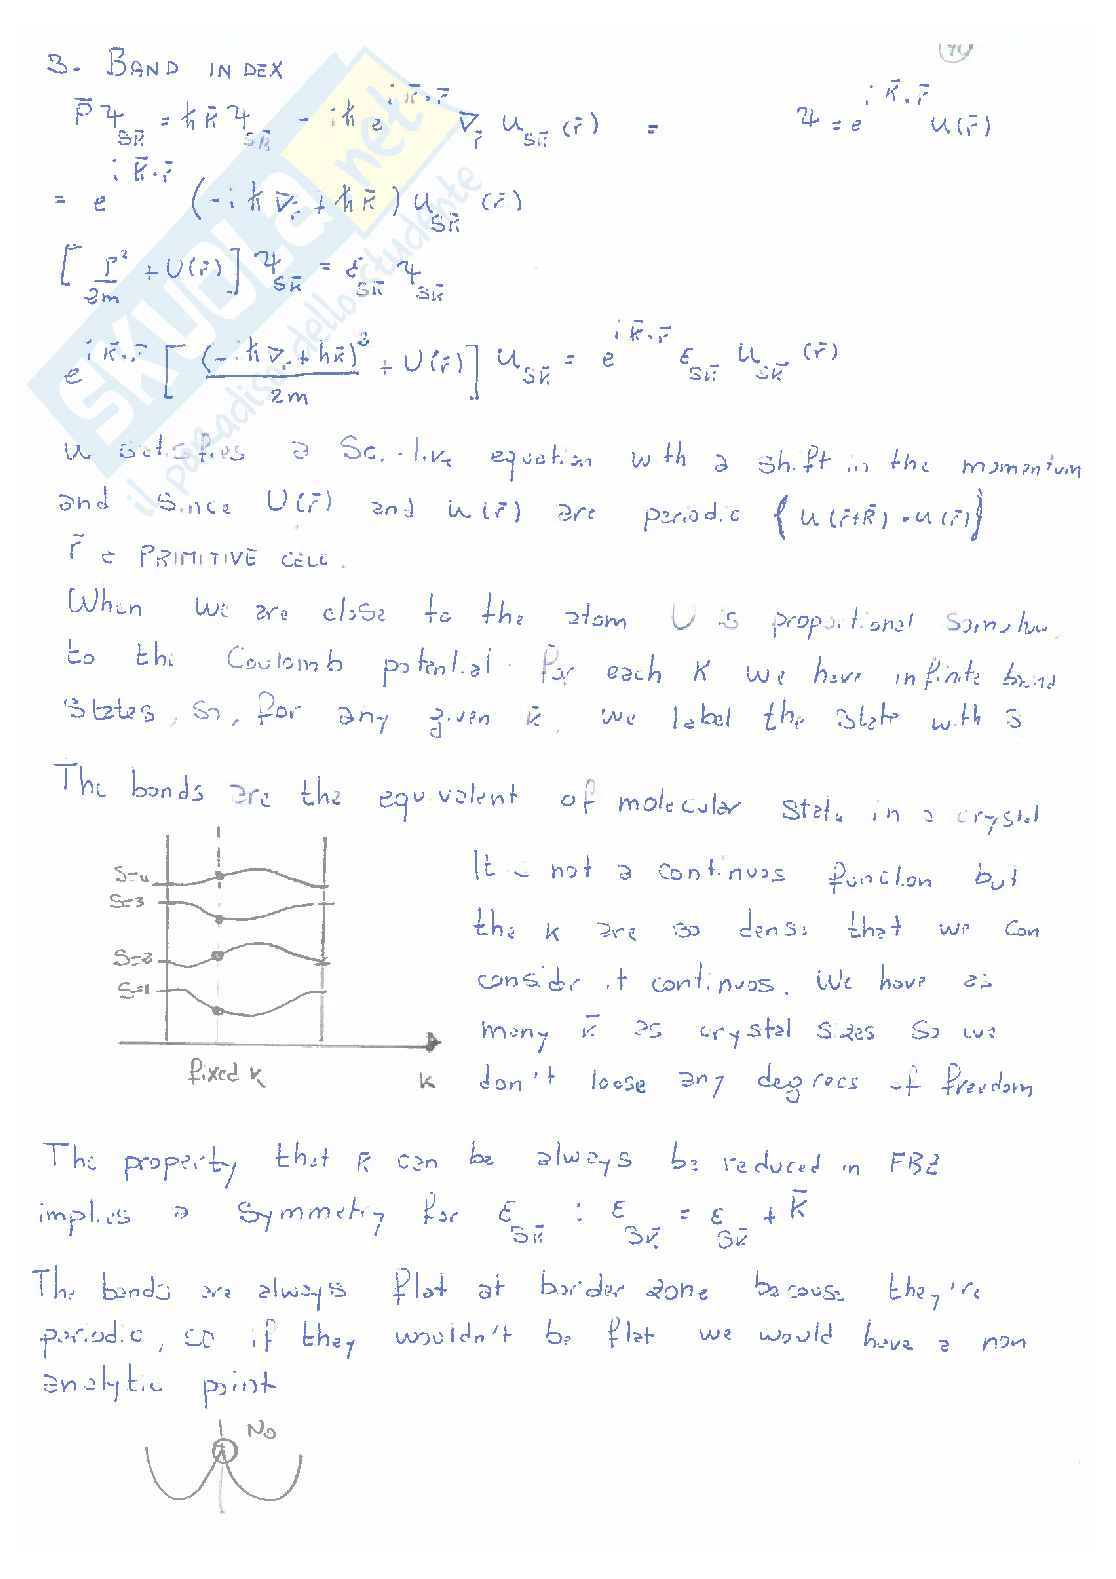 3. BAND INDEX
P̄ψ_{sk̄} = ħk̄ψ_{sk̄} - iħ e^{ik̄·r̄} ∇_r̄ u_{sk̄}(r̄) =      ψ = e^{ik̄·r̄} u(r̄)
= e^{ik̄·r̄} (-iħ∇_r + ħk̄) u_{sk̄} (r̄)
[P²/2m + U(r̄)] ψ_{sk̄} = ε_{sk̄} ψ_{sk̄}
e^{ik̄·r̄} [(-iħ∇_r + ħk̄)²/2m + U(r̄)] u_{sk̄} = e^{ik̄·r̄} ε_{sk̄} u_{sk̄} (r̄)
u satisfies a Sc.-like equation with a shift in the momentum
and since U(r̄) and u(r̄) are periodic {u(r̄+R̄) = u(r̄)}
r̄ ∈ PRIMITIVE CELL.
When we are close to the atom U is proportional somehow
to the Coulomb potential. For each K we have infinite bound
states, so, for any given k̄, we label the state with s
The bands are the equivalent of molecular state in a crystal
It is not a continuos function but
the k are so dense that we can
consider it continuos. We have as
many k̄ as crystal sizes so we
don't loose any degrees of freedom
S=4
S=3
S=2
S=1
fixed k
k
The property that k̄ can be always be reduced in FBZ
implies a symmetry for ε_{sk̄} : ε_{sk̄} = ε_{sk̄} + K̄
The bands are always flat at border zone because they're
periodic, so if they wouldn't be flat we would have a non
analytic point
No
SKUOLA.net
il paradiso dello studente